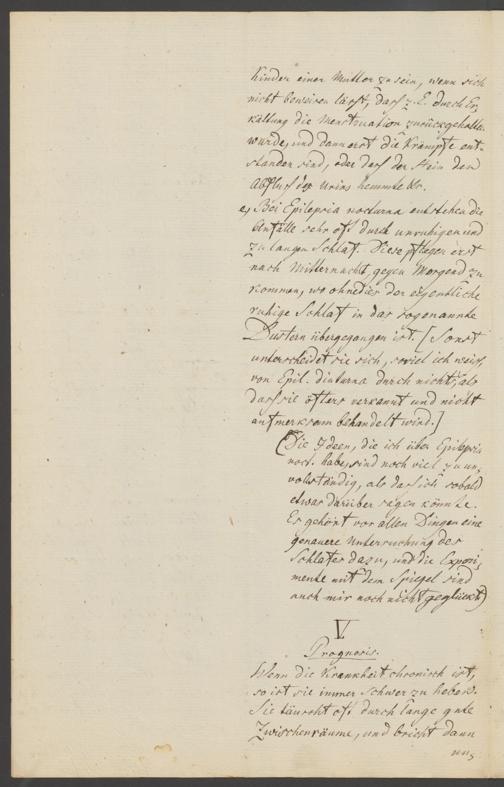 Kinder einer Mutter zu sein, wenn sich
nicht beweisen läßt, daß z. E. durch Er,
kältung die Menstruation zurückgehalten
wurde, und dann erst die Krämpfe ent,
standen sind, oder daß der Stein den
Abfluß des Urins hemmte &c.
e, Bei Epilepsia nocturna entstehen die
Anfälle sehr oft durch unruhigen und
zu langen Schlaf. Diese pflegen erst
nach Mitternacht, gegen Morgend zu
kommen, wo ohnedies der eigentliche
ruhige Schlaf in das sogenannte
Dustern übergegangen ist. [Sonst
unterscheidet sie sich, soviel ich weiß,
von Epil. diuturna durch nichts, als
daß sie öfters verkannt und nicht
aufmerksam behandelt wird.]
(Die Ideen, die ich über Epilepsia
noct. habe, sind noch viel zu un,
vollständig, als daß ich sobald
etwas darüber sagen könnte.
Es gehört vor allen Dingen eine
genauere Untersuchung des
Schlafes dazu, und die Experi,
mente mit dem Spiegel sind
auch mir noch nicht geglückt)
V.
Prognosis.
Wenn die Krankheit chronisch ist,
so ist sie immer schwer zu heben.
Sie täuscht oft durch lange gute
Zwischenräume, und bricht dann